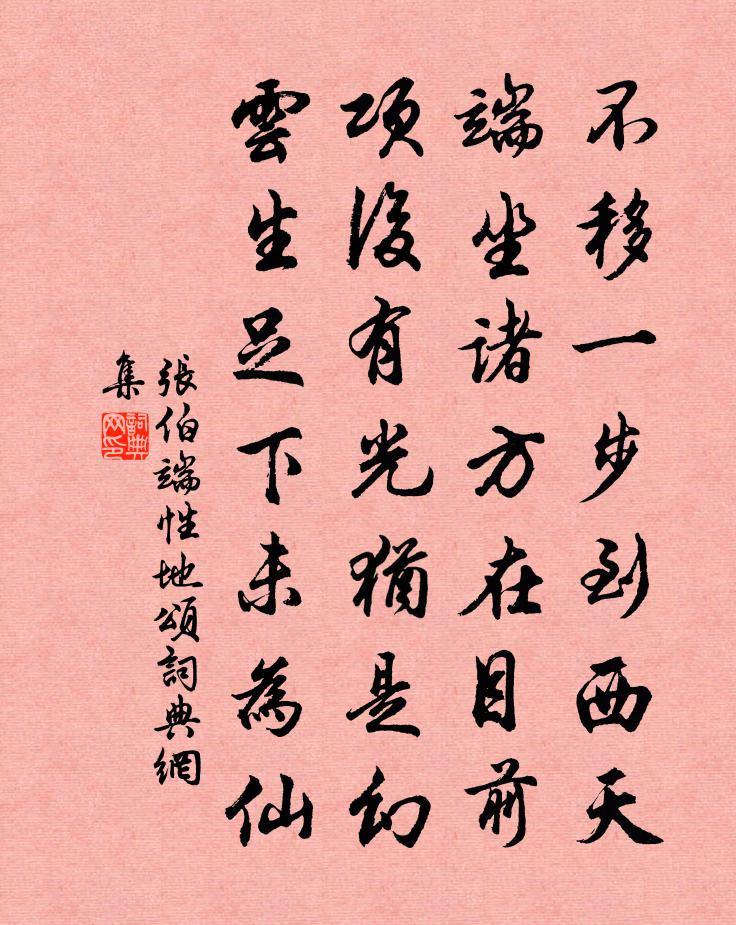 不移一步到西天
端坐諸方在目前
項後有光猶是幻
雲生足下未為仙
張伯端性地頌詞典網
集
詞典网印